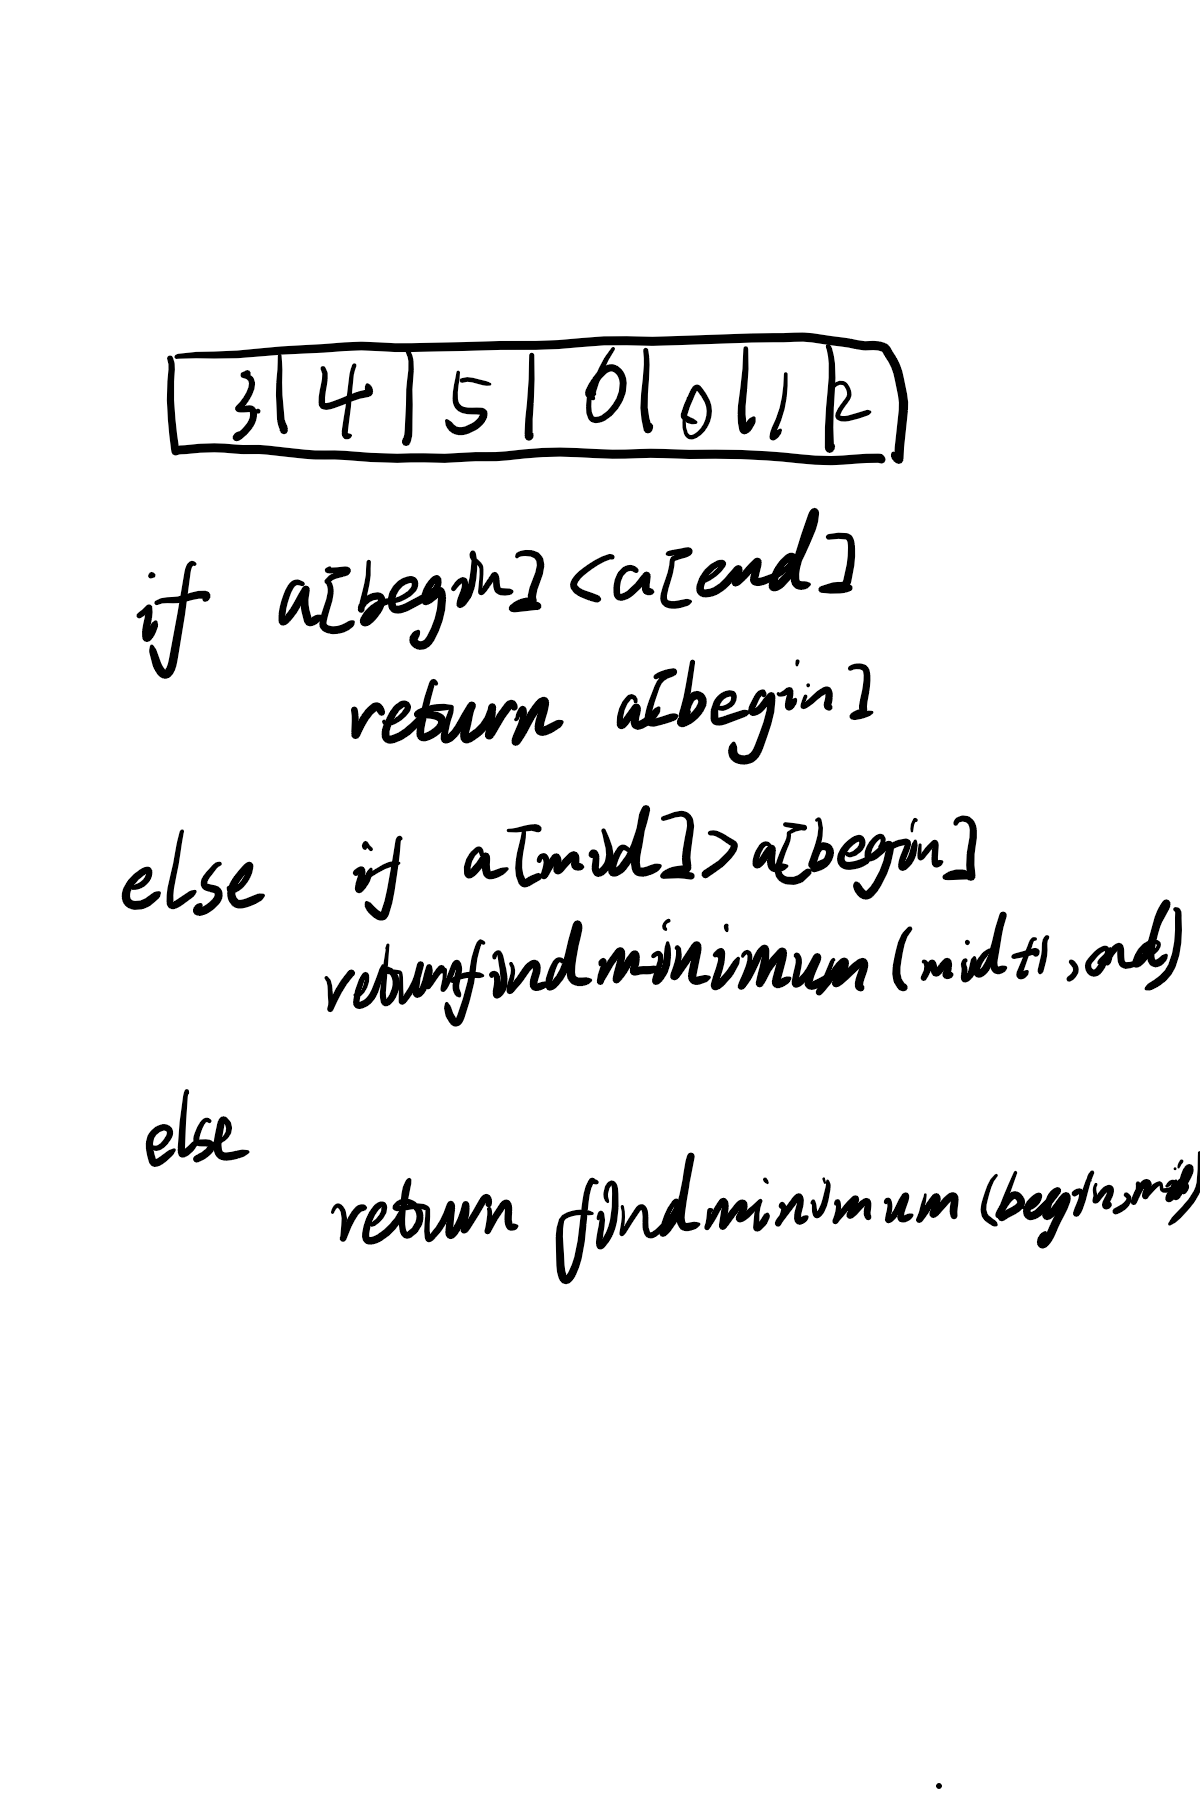 3 4 5 0 0 1 2
if a[begin] < a[end]
return a[begin]
else if a[mid] > a[begin]
return findminimum (mid+1, end)
else
return findminimum (begin, mid)